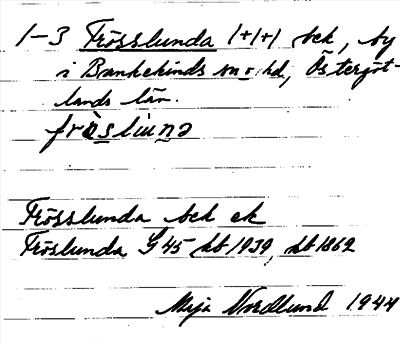 1-3 Frösslunda 1+1+1 sek, by
i Bankekinds sn o. hd, Östergöt-
lands län.
frə̀slu̇nə
Frösslunda sek ek
Fröslunda G45 kb 1939, kb 1862
Maja Nordlund 1944